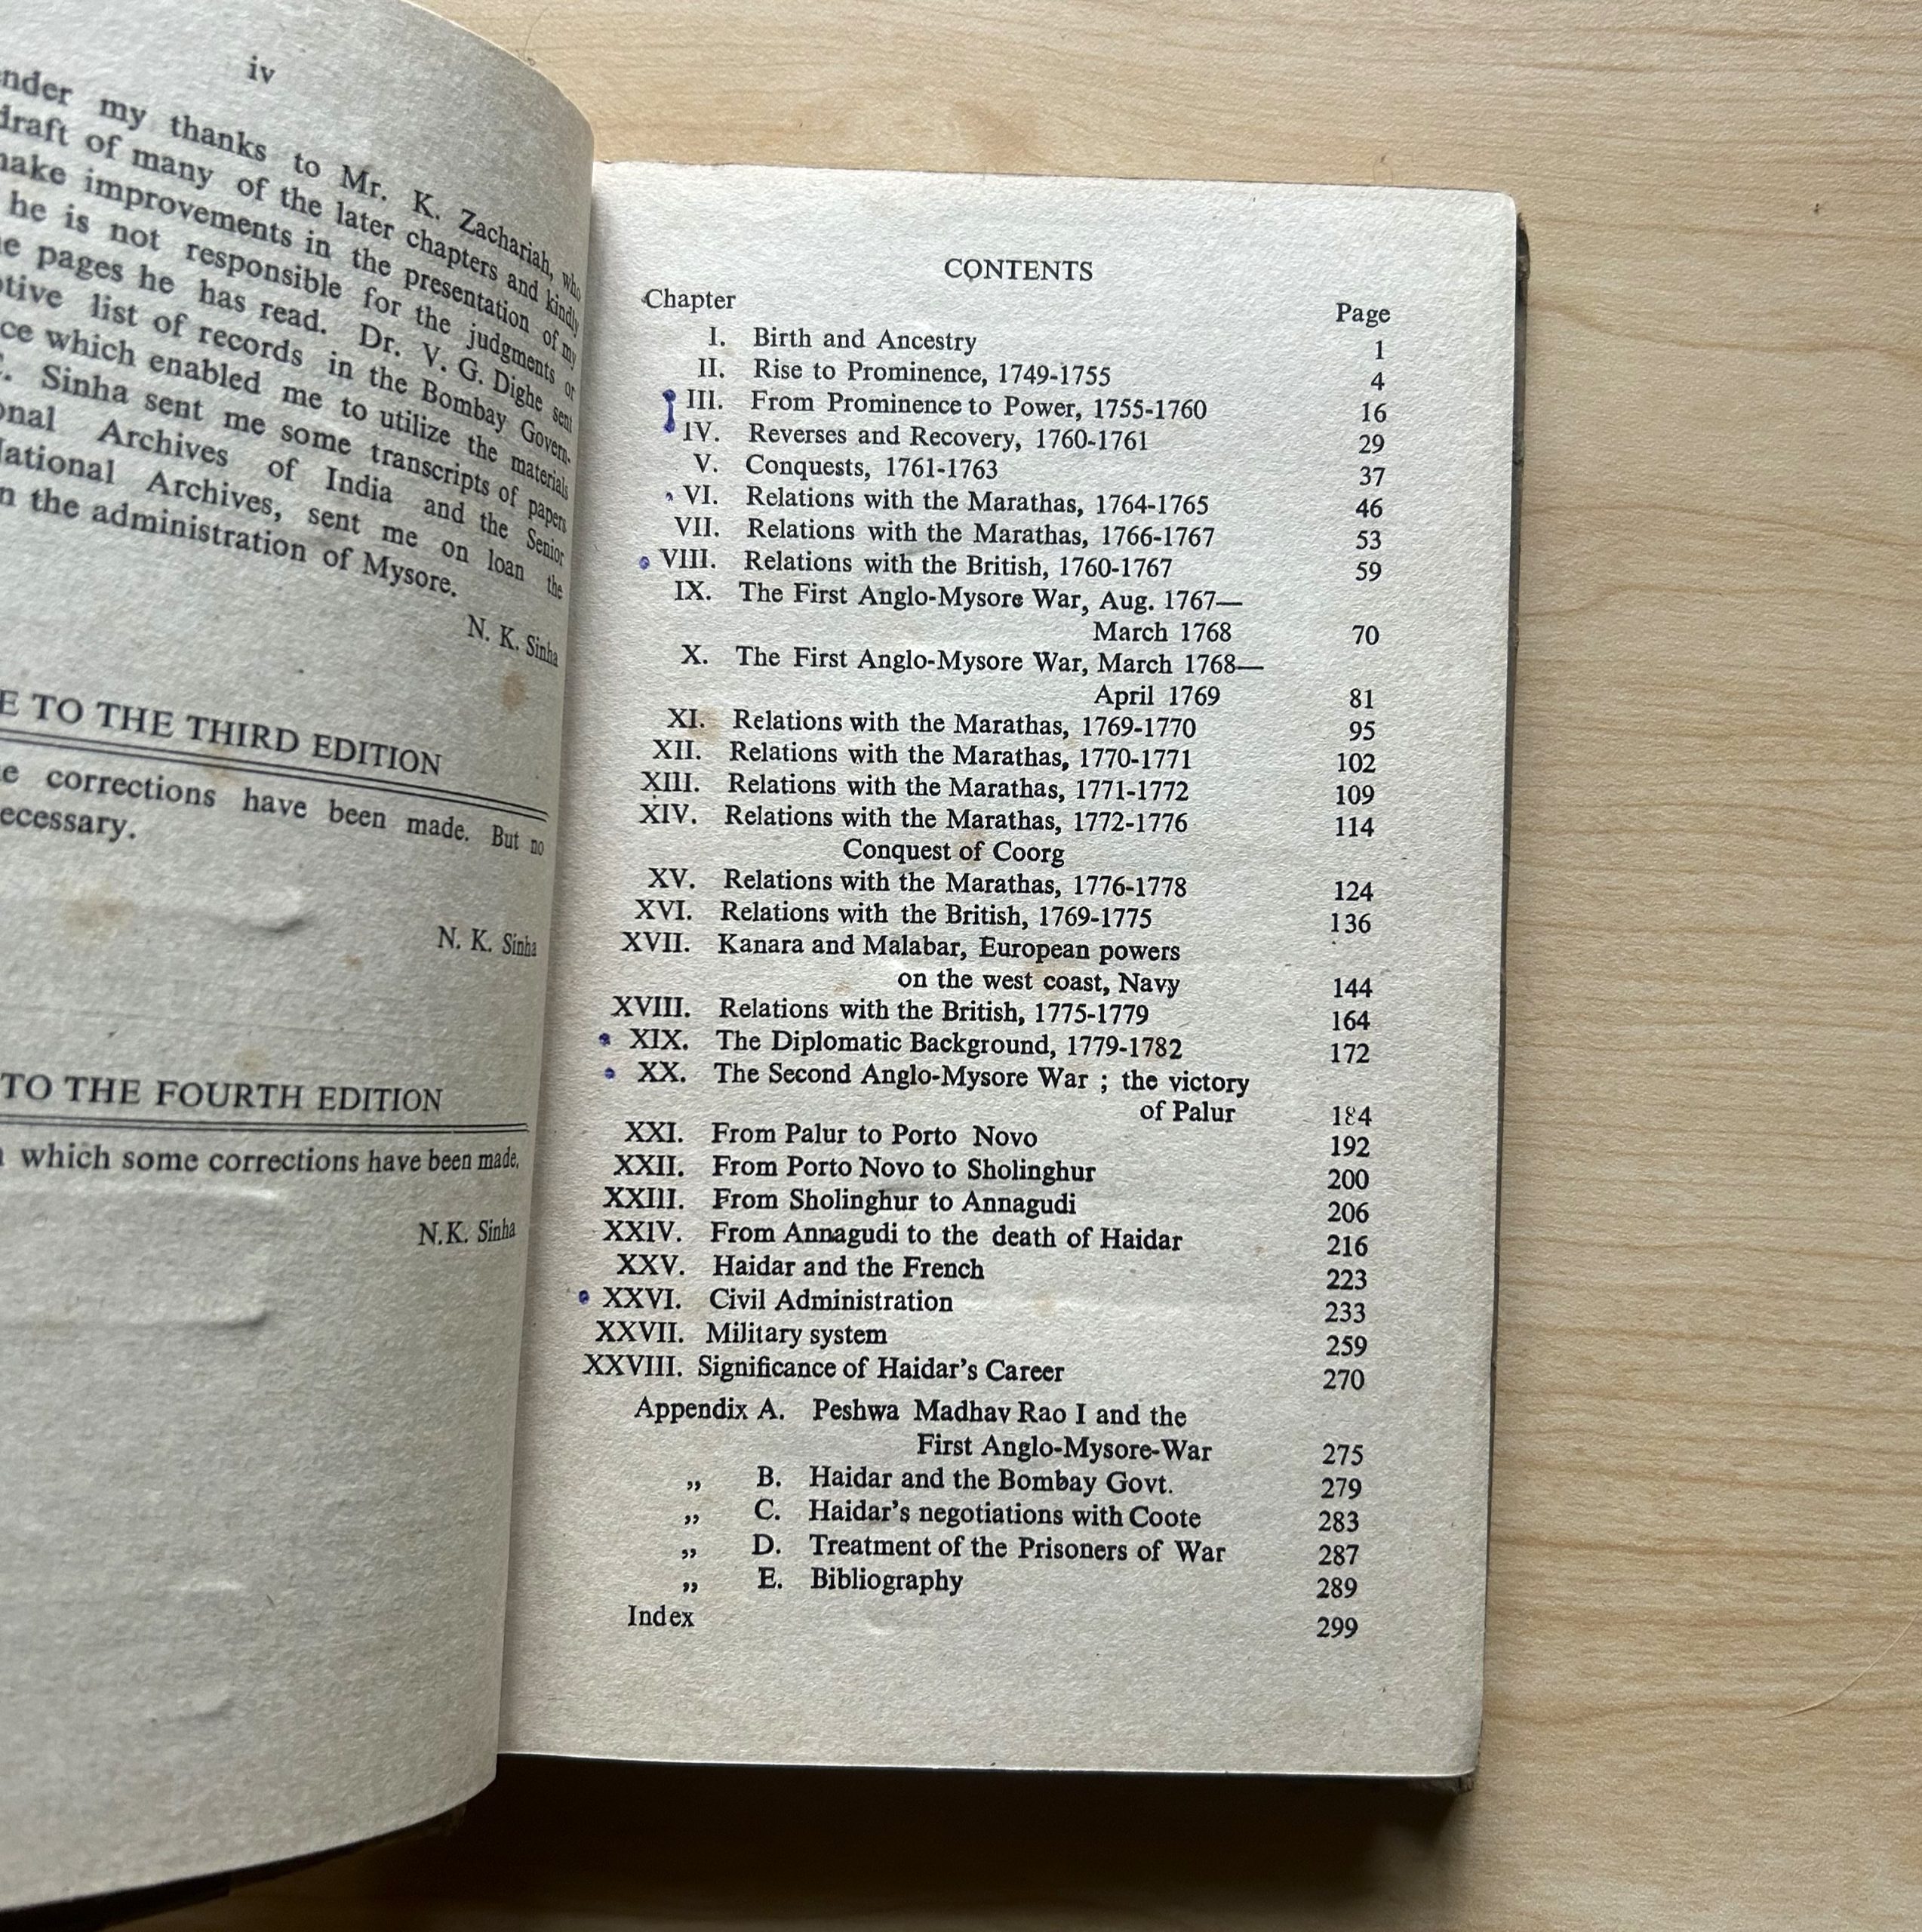 iv
nder my thanks to Mr. K. Zachariah, who
draft of many of the later chapters and kindly
make improvements in the presentation of my
he is not responsible for the judgments or
e pages he has read. Dr. V. G. Dighe sent
tive list of records in the Bombay Govern-
ce which enabled me to utilize the materials
. Sinha sent me some transcripts of papers
onal Archives of India and the Senior
National Archives, sent me on loan the
n the administration of Mysore.
N. K. Sinha
E TO THE THIRD EDITION
e corrections have been made. But no
ecessary.
N. K. Sinha
TO THE FOURTH EDITION
which some corrections have been made.
N.K. Sinha
CONTENTS
Chapter Page
I. Birth and Ancestry 1
II. Rise to Prominence, 1749-1755 4
III. From Prominence to Power, 1755-1760 16
IV. Reverses and Recovery, 1760-1761 29
V. Conquests, 1761-1763 37
VI. Relations with the Marathas, 1764-1765 46
VII. Relations with the Marathas, 1766-1767 53
VIII. Relations with the British, 1760-1767 59
IX. The First Anglo-Mysore War, Aug. 1767—
March 1768 70
X. The First Anglo-Mysore War, March 1768—
April 1769 81
XI. Relations with the Marathas, 1769-1770 95
XII. Relations with the Marathas, 1770-1771 102
XIII. Relations with the Marathas, 1771-1772 109
XIV. Relations with the Marathas, 1772-1776 114
Conquest of Coorg
XV. Relations with the Marathas, 1776-1778 124
XVI. Relations with the British, 1769-1775 136
XVII. Kanara and Malabar, European powers
on the west coast, Navy 144
XVIII. Relations with the British, 1775-1779 164
XIX. The Diplomatic Background, 1779-1782 172
XX. The Second Anglo-Mysore War ; the victory
of Palur 184
XXI. From Palur to Porto Novo 192
XXII. From Porto Novo to Sholinghur 200
XXIII. From Sholinghur to Annagudi 206
XXIV. From Annagudi to the death of Haidar 216
XXV. Haidar and the French 223
XXVI. Civil Administration 233
XXVII. Military system 259
XXVIII. Significance of Haidar's Career 270
Appendix A. Peshwa Madhav Rao I and the
First Anglo-Mysore-War 275
,, B. Haidar and the Bombay Govt. 279
,, C. Haidar's negotiations with Coote 283
,, D. Treatment of the Prisoners of War 287
,, E. Bibliography 289
Index 299